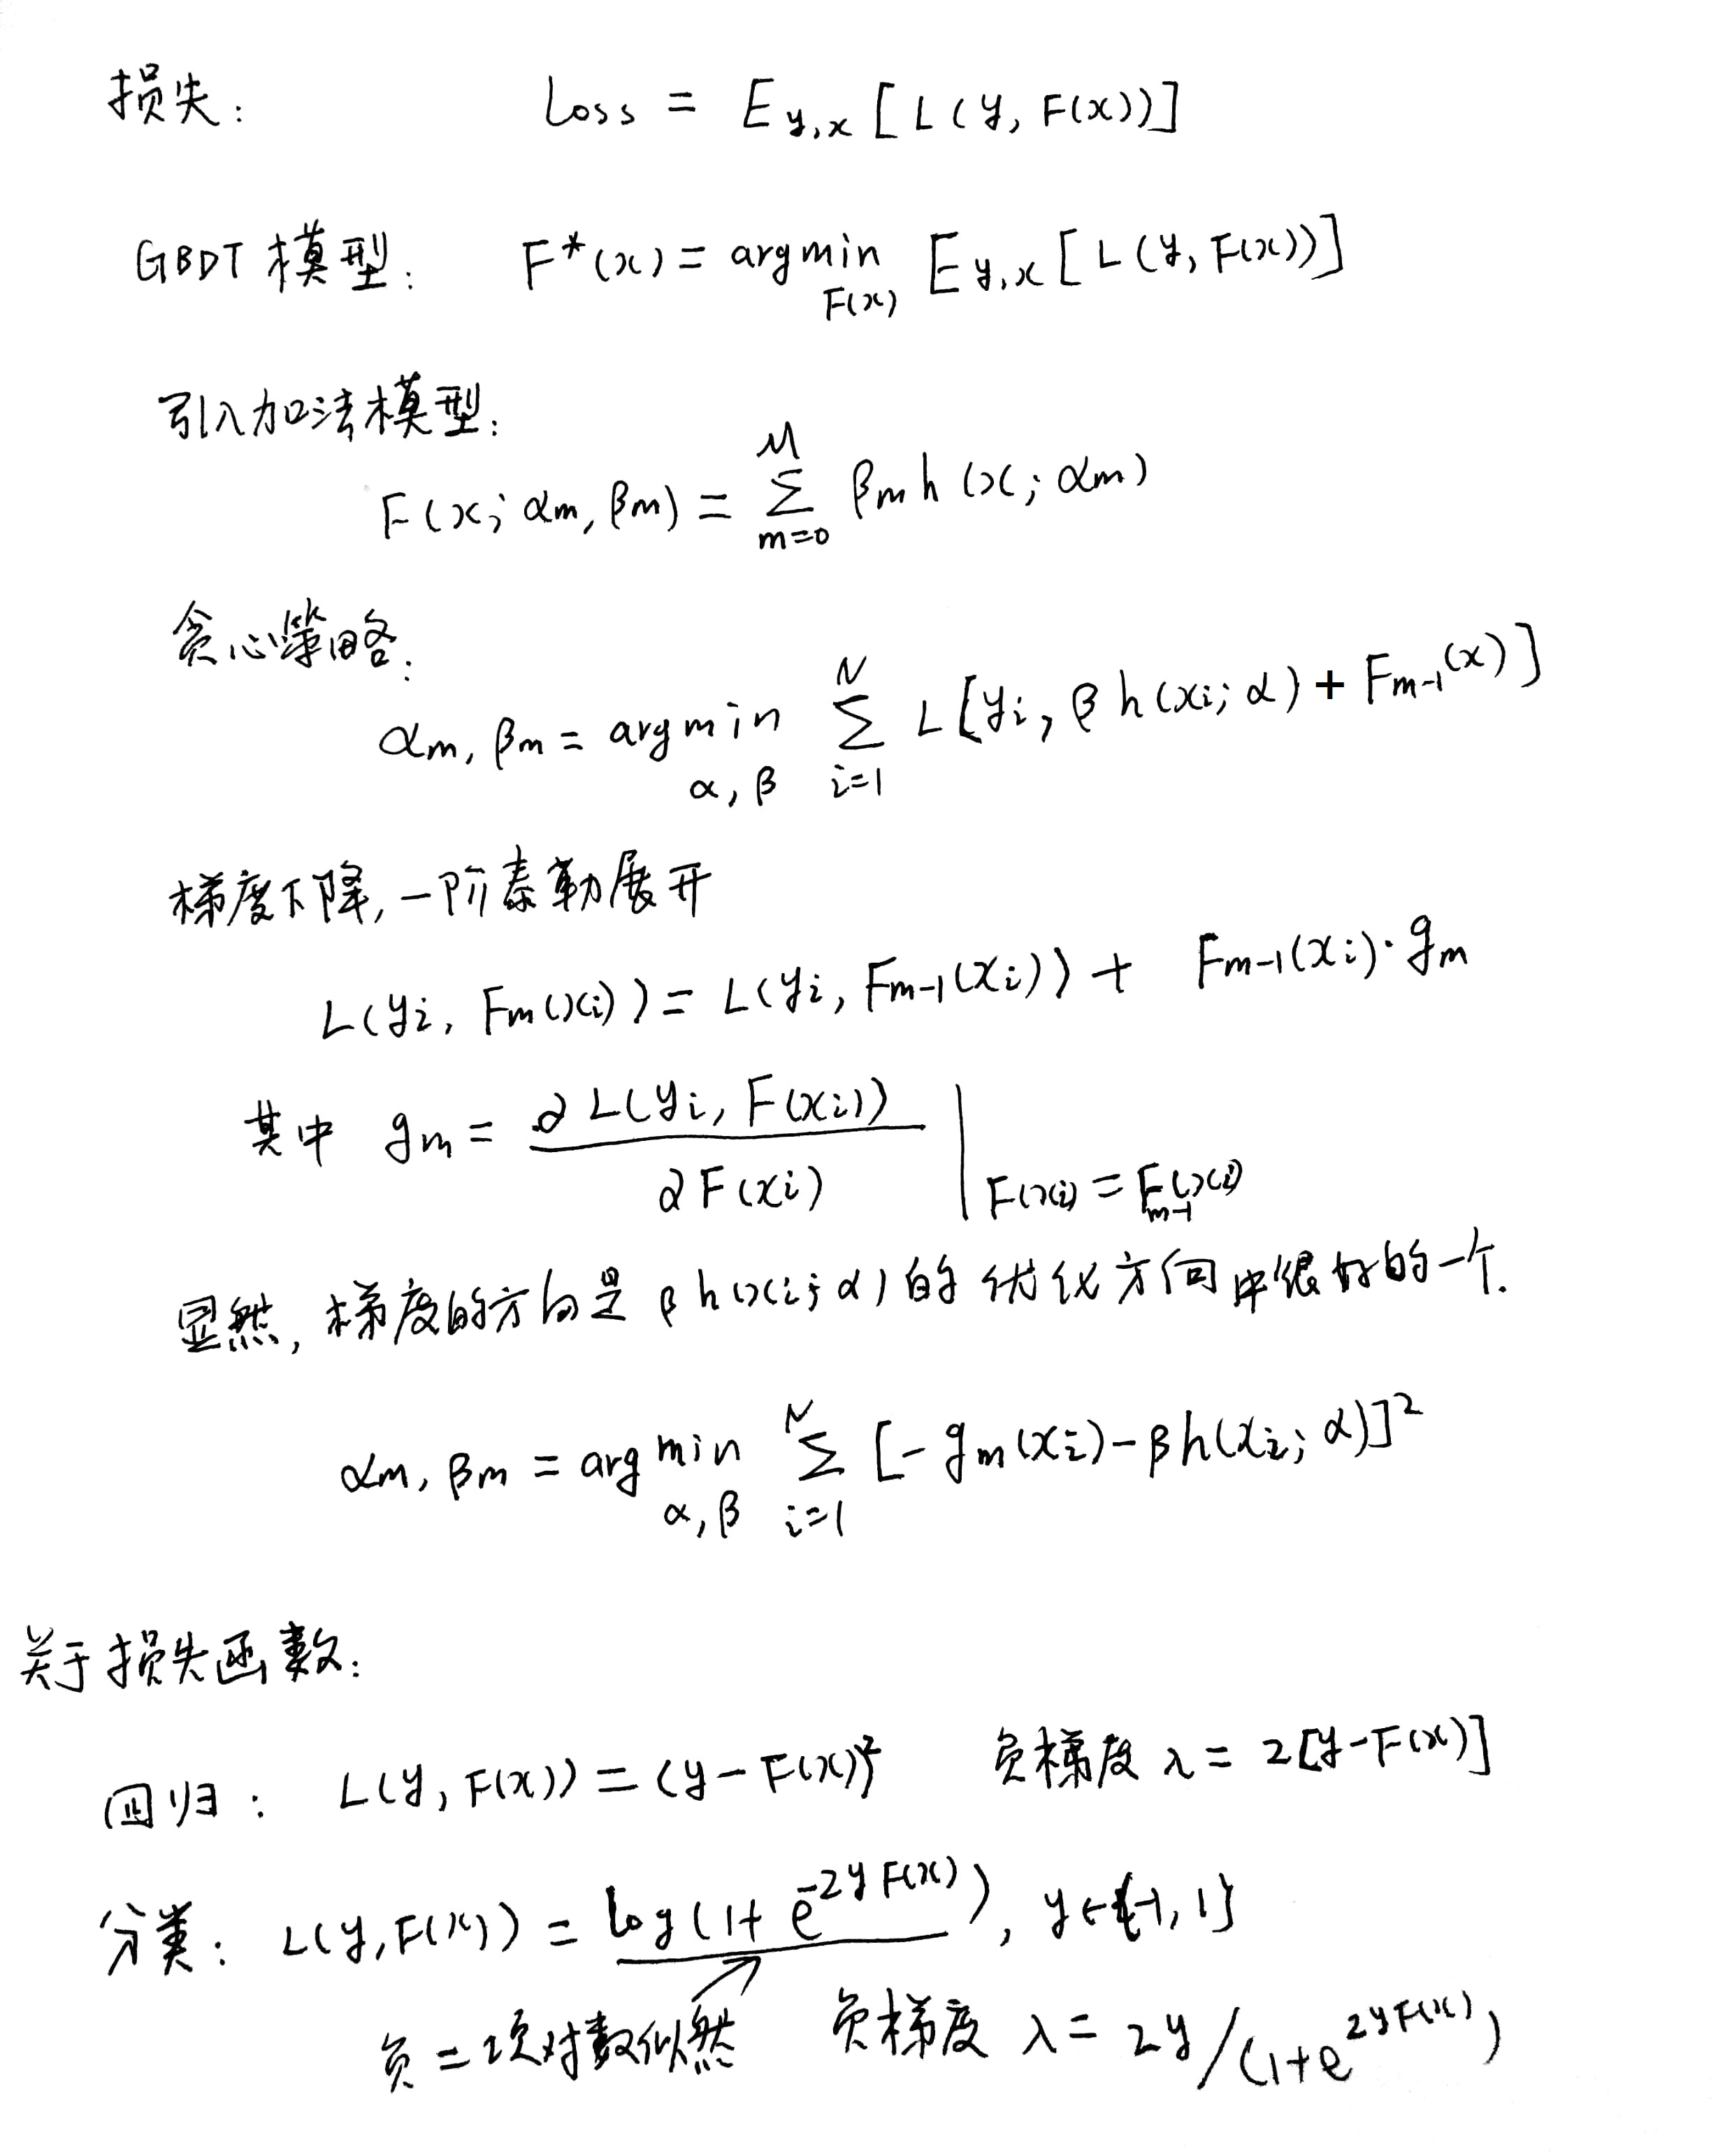 损失: Loss = E_{y,x}[L(y, F(x))]
GBDT模型: F*(x) = argmin_{F(x)} E_{y,x}[L(y, F(x))]
引入加法模型:
F(x; α_m, β_m) = Σ_{m=0}^{M} β_m h(x; α_m)
贪心策略:
α_m, β_m = argmin_{α,β} Σ_{i=1}^{N} L[y_i, β h(x_i; α) + F_{m-1}(x)]
梯度下降,一阶泰勒展开
L(y_i, F_m(x_i)) = L(y_i, F_{m-1}(x_i)) + F_{m-1}(x_i)·g_m
其中 g_m = ∂L(y_i, F(x_i)) / ∂F(x_i) |_{F(x_i) = F_{m-1}(x_i)}
显然,梯度的方向是βh(x_i; α)的优化方向中很好的一个.
α_m, β_m = argmin_{α,β} Σ_{i=1}^{N} [-g_m(x_i) - βh(x_i; α)]^2
关于损失函数:
回归: L(y, F(x)) = (y - F(x))^2 负梯度 λ = 2[y - F(x)]
分类: L(y, F(x)) = log(1 + e^{-2yF(x)}), y∈{-1, 1}
负二项对数似然 负梯度 λ = 2y/(1+e^{2yF(x)})